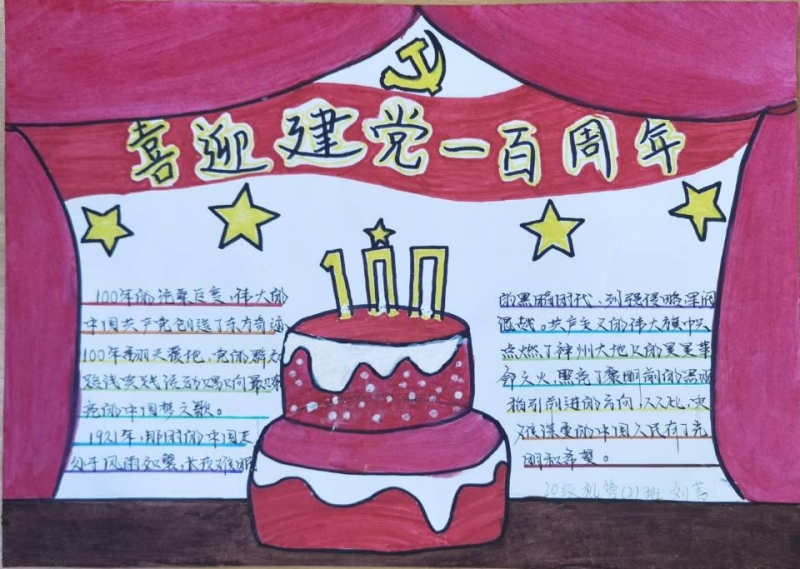 喜迎建党一百周年
100
100年的沧桑巨变,伟大的
中国共产党创造了东方奇迹
100年翻天覆地,党的群众
路线实践活动唱响最嘹
亮的中国梦之歌。
1921年,那时的中国是
处于风雨如磐,长夜难明
的黑暗时代、列强侵略军阀
混战。共产主义的伟大旗中
点燃了神州大地上的星星革
命之火,照亮了黎明前的黑暗
指引前进的方向,从此,灾
难深重的中国人民有了光
明和希望。
20级机管(2)班 刘